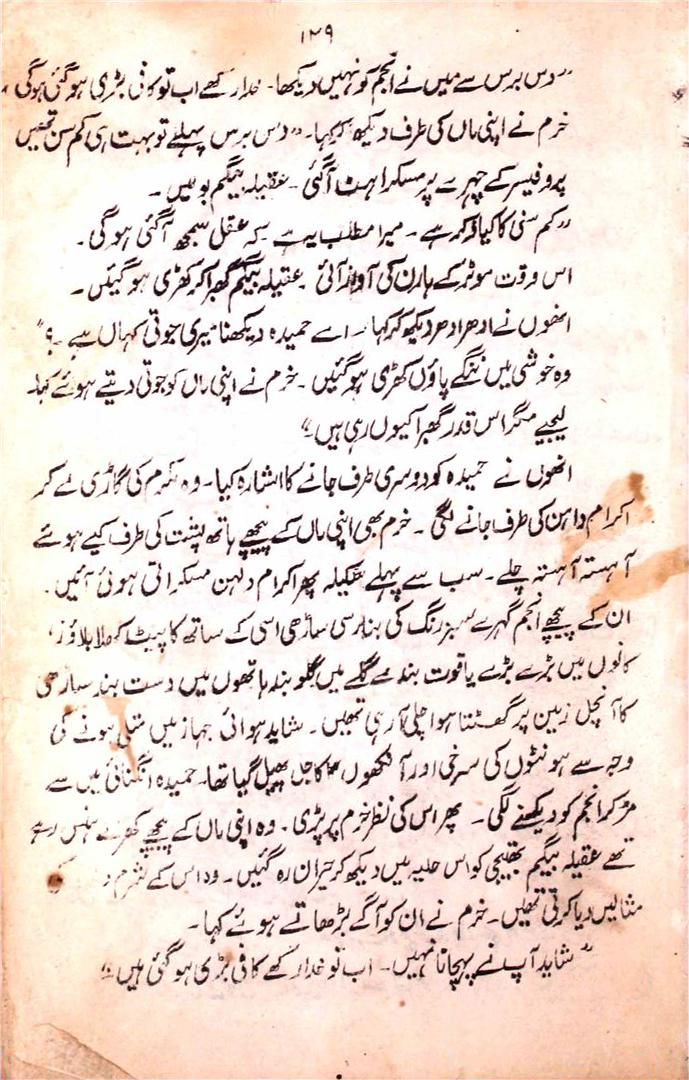 ۱۳۹
”دس برس سے میں نے انجم کو نہیں دیکھا۔ خدا رکھے اب تو کافی بڑی ہو گئی ہوگی“
خرم نے اپنی ماں کی طرف دیکھ کر کہا۔ ”دس برس پہلے تو بہت ہی کم سن تھیں
پروفیسر کے چہرے پر مسکراہٹ آ گئی۔ عقیلہ بیگم بولیں۔
”کم سنی کا کیا ذکر ہے۔ میرا مطلب یہ ہے کہ عقل سمجھ آ گئی ہو گی۔
اس وقت موٹر کے ہارن کی آواز آئی عقیلہ بیگم گھبرا کر کھڑی ہو گئیں۔
انھوں نے ادھر ادھر دیکھ کر کہا۔ اے حمیدہ دیکھنا میری جوتی کہاں ہے۔؟“
وہ خوشی میں ننگے پاؤں کھڑی ہو گئیں۔ خرم نے اپنی ماں کو جوتی دیتے ہوئے کہا۔
لیجیے مگر اس قدر گھبرا کیوں رہی ہیں“
انھوں نے حمیدہ کو دوسری طرف جانے کا اشارہ کیا۔ وہ مکرم کی گاڑی لے کر
اکرام دلہن کی طرف جانے لگی۔ خرم بھی اپنی ماں کے پیچھے ہاتھ پشت کی طرف کیے ہوئے
آہستہ آہستہ چلے۔ سب سے پہلے شکیلہ پھر اکرام دلہن مسکراتی ہوئی آئیں۔
ان کے پیچھے انجم گہرے سبز رنگ کی بنارسی ساڑھی اسی کے ساتھ کا پیٹ کھلا بلاؤز،
کانوں میں بڑے بڑے یاقوت بندے گلے میں گلوبند ہاتھوں میں دست بند ساڑھی
کا آنچل زمین پر گھسٹتا ہوا چلی آ رہی تھیں۔ شاید ہوائی جہاز میں متلی ہونے کی
وجہ سے ہونٹوں کی سرخی اور آنکھوں کا کاجل پھیل گیا تھا۔ حمیدہ انگنائی میں سے
مڑ کر انجم کو دیکھنے لگی۔ پھر اس کی نظر خرم پر پڑی۔ وہ اپنی ماں کے پیچھے کھڑے ہنس رہے
تھے عقیلہ بیگم بھتیجی کو اس حلیہ میں دیکھ کر حیران رہ گئیں۔ وہ اس کے شرم و
مثالیں دیا کرتی تھیں۔ خرم نے ان کو آگے بڑھاتے ہوئے کہا۔
”شاید آپ نے پہچانا نہیں۔ اب تو خدا رکھے کافی بڑی ہو گئی ہیں“